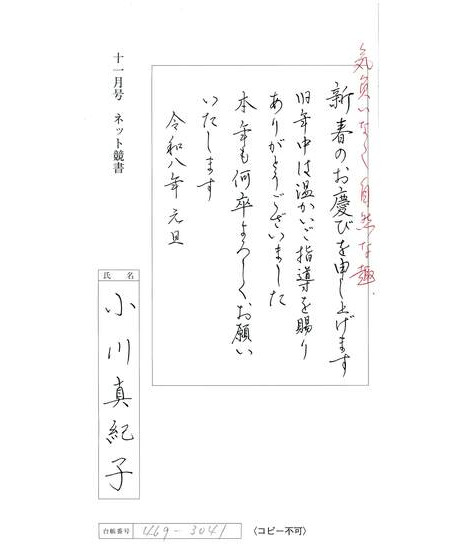 気負いなく自然な趣.
新春のお慶びを申し上げます
旧年中は温かいご指導を賜り
ありがとうございました
本年も何卒よろしくお願い
いたします
令和八年 元旦
十一月号 ネット競書
氏名
小川真紀子
台帳番号 469-3041
〈コピー不可〉